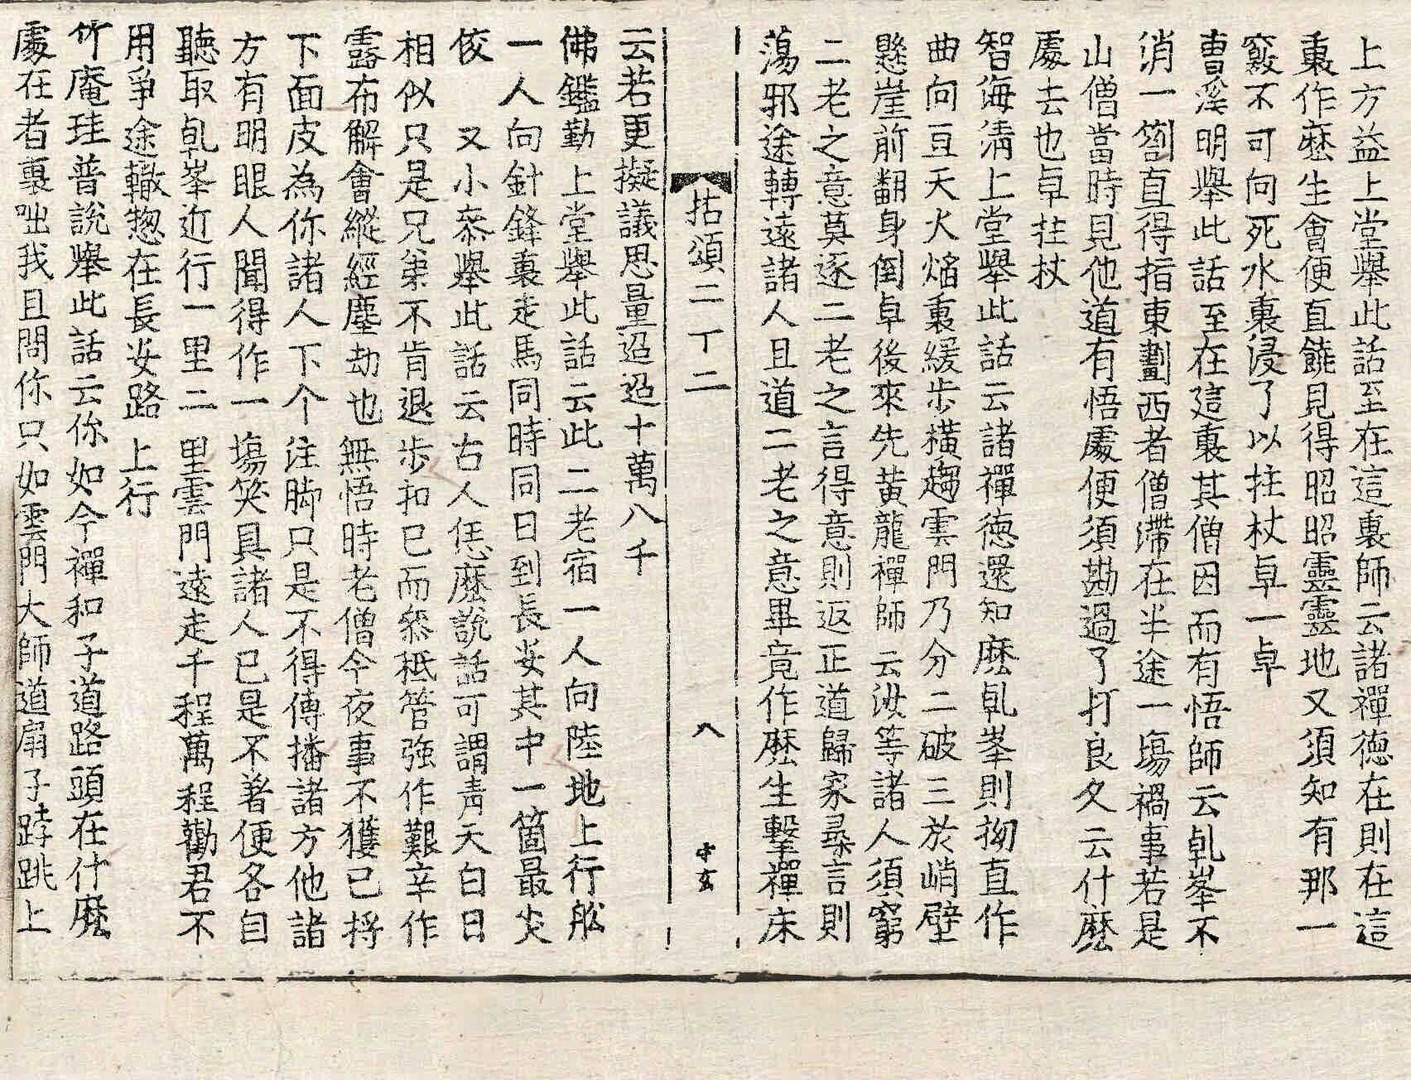 上方益上堂舉此話至在這裏師云諸禪德在則在這
裏作麽生會便直饒見得昭昭靈靈地又須知有那一
竅不可向死水裏浸了以拄杖卓一卓
曹溪明舉此話至在這裏其僧因而有悟師云乹峯不
消一劄直得指東劃西者僧滯在半途一場禍事若是
山僧當時見他道有悟處便須勘過了打良久云什麽
處去也卓拄杖
智海淸上堂舉此話云諸禪德還知麽乹峯則拗直作
曲向亘天火焰裏緩步橫趨雲門乃分二破三於峭壁
懸崖前翻身倒卓後來先黃龍禪師云汝等諸人須窮
二老之意莫逐二老之言得意則返正道歸家尋言則
蕩邪途轉遠諸人且道二老之意畢竟作麽生擊禪床
拈頌二丁二
八
守玄
云若更擬議思量迢迢十萬八千
佛鑑勤上堂舉此話云此二老宿一人向陸地上行舩
一人向針鋒裏走馬同時同日到長安其中一箇最尖
佼 又小叅舉此話云古人恁麽說話可謂靑天白日
相似只是兄弟不肯退步扣已而叅秪管強作艱辛作
露布解會縱經塵劫也無悟時老僧今夜事不獲已捋
下面皮為你諸人下个注脚只是不得傳播諸方他諸
方有明眼人聞得作一場笑具諸人已是不著便各自
聽取乹峯近行一里二里雲門遠走千程萬程勸君不
用爭途轍惣在長安路上行
竹庵珪普說舉此話云你如今禪和子道路頭在什麽
處在者裏咄我且問你只如雲門大師道扇子𨁝跳上